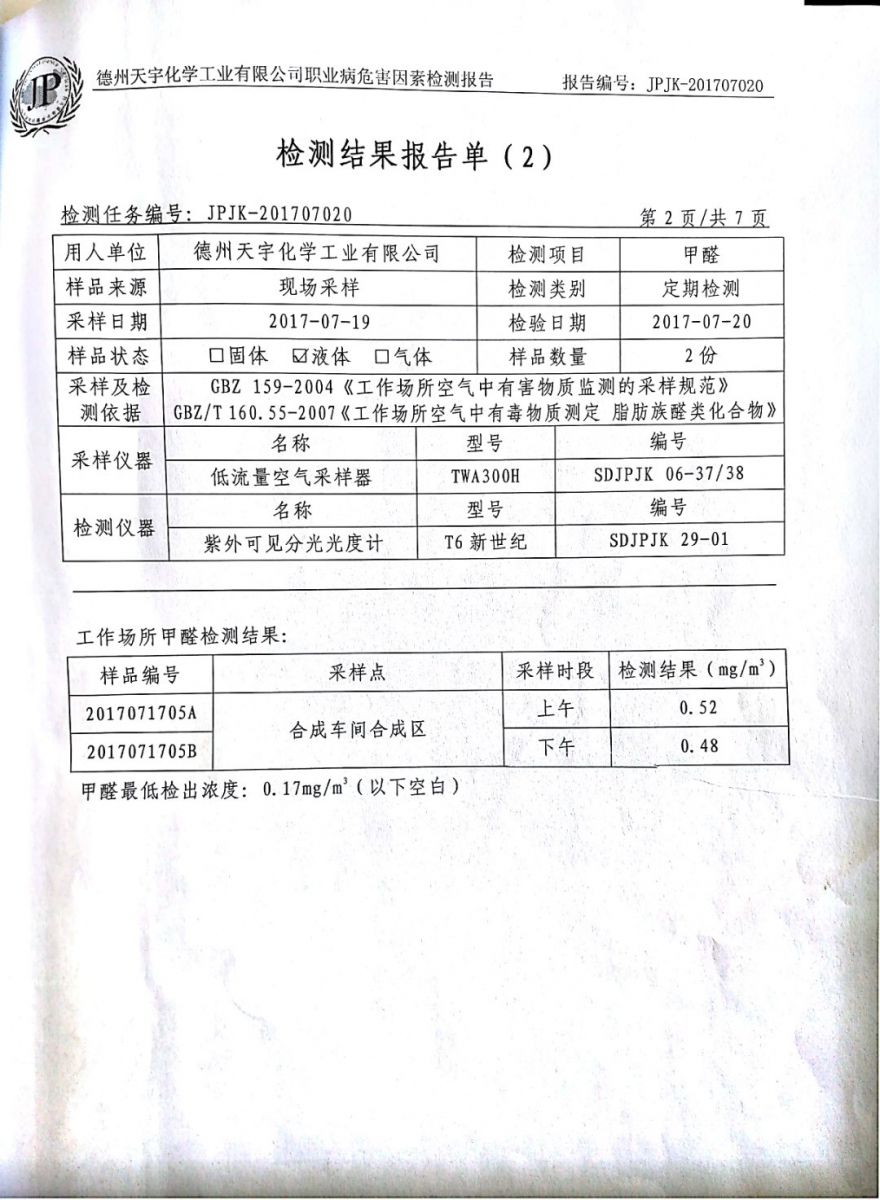 JP
德州天宇化学工业有限公司职业病危害因素检测报告 报告编号：JPJK-201707020
检测结果报告单（2）
检测任务编号：JPJK-201707020 第 2 页/共 7 页
用人单位 德州天宇化学工业有限公司 检测项目 甲醛
样品来源 现场采样 检测类别 定期检测
采样日期 2017-07-19 检验日期 2017-07-20
样品状态 □固体 ☑液体 □气体 样品数量 2 份
采样及检测依据 GBZ 159-2004《工作场所空气中有害物质监测的采样规范》
GBZ/T 160.55-2007《工作场所空气中有毒物质测定 脂肪族醛类化合物》
采样仪器 名称 型号 编号
低流量空气采样器 TWA300H SDJPJK 06-37/38
检测仪器 名称 型号 编号
紫外可见分光光度计 T6 新世纪 SDJPJK 29-01
工作场所甲醛检测结果：
样品编号 采样点 采样时段 检测结果（mg/m³）
2017071705A 合成车间合成区 上午 0.52
2017071705B 下午 0.48
甲醛最低检出浓度：0.17mg/m³（以下空白）